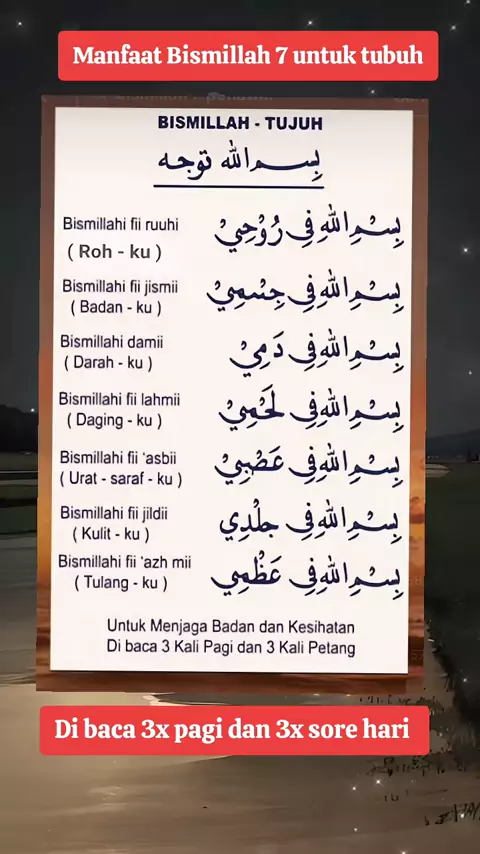 Manfaat Bismillah 7 untuk tubuh
BISMILLAH - TUJUH
بِسْمِ اللّٰه توجه
Bismillahi fii ruuhi
بِسْمِ اللّٰهِ فِي رُوْحِيْ
( Roh - ku )
Bismillahi fii jismii
بِسْمِ اللّٰهِ فِي جِسْمِيْ
( Badan - ku )
Bismillahi damii
بِسْمِ اللّٰهِ فِي دَمِيْ
( Darah - ku )
Bismillahi fii lahmii
بِسْمِ اللّٰهِ فِي لَحْمِيْ
( Daging - ku )
Bismillahi fii 'asbii
بِسْمِ اللّٰهِ فِي عَصْبِيْ
( Urat - saraf - ku )
Bismillahi fii jildii
بِسْمِ اللّٰهِ فِي جِلْدِي
( Kulit - ku )
Bismillahi fii 'azh mii
بِسْمِ اللّٰهِ فِي عَظْمِي
( Tulang - ku )
Untuk Menjaga Badan dan Kesihatan
Di baca 3 Kali Pagi dan 3 Kali Petang
Di baca 3x pagi dan 3x sore hari